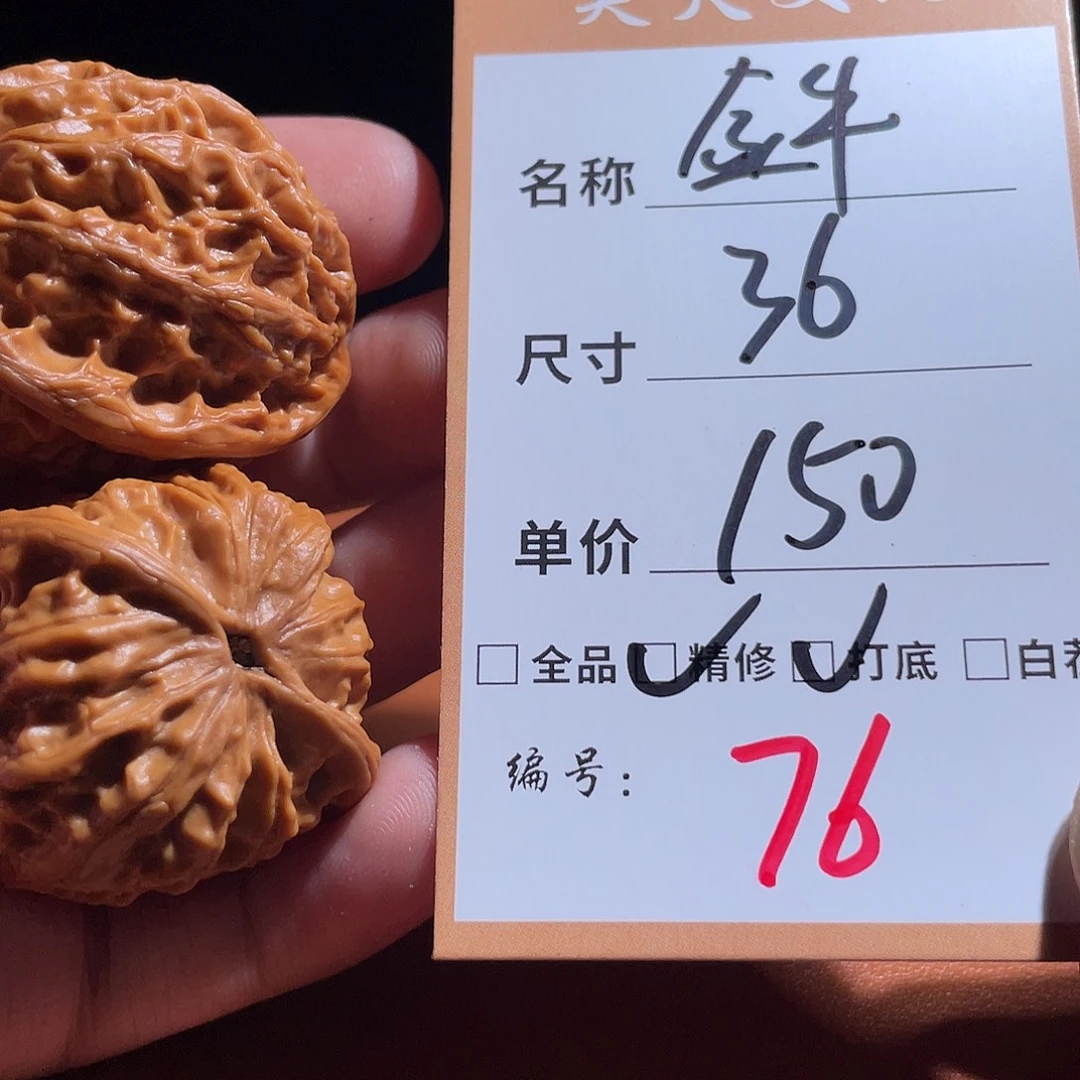 名称
尺寸 36
单价 150
□ 全品 ☑ 精修 ☑ 打底 □ 白
编号: 76